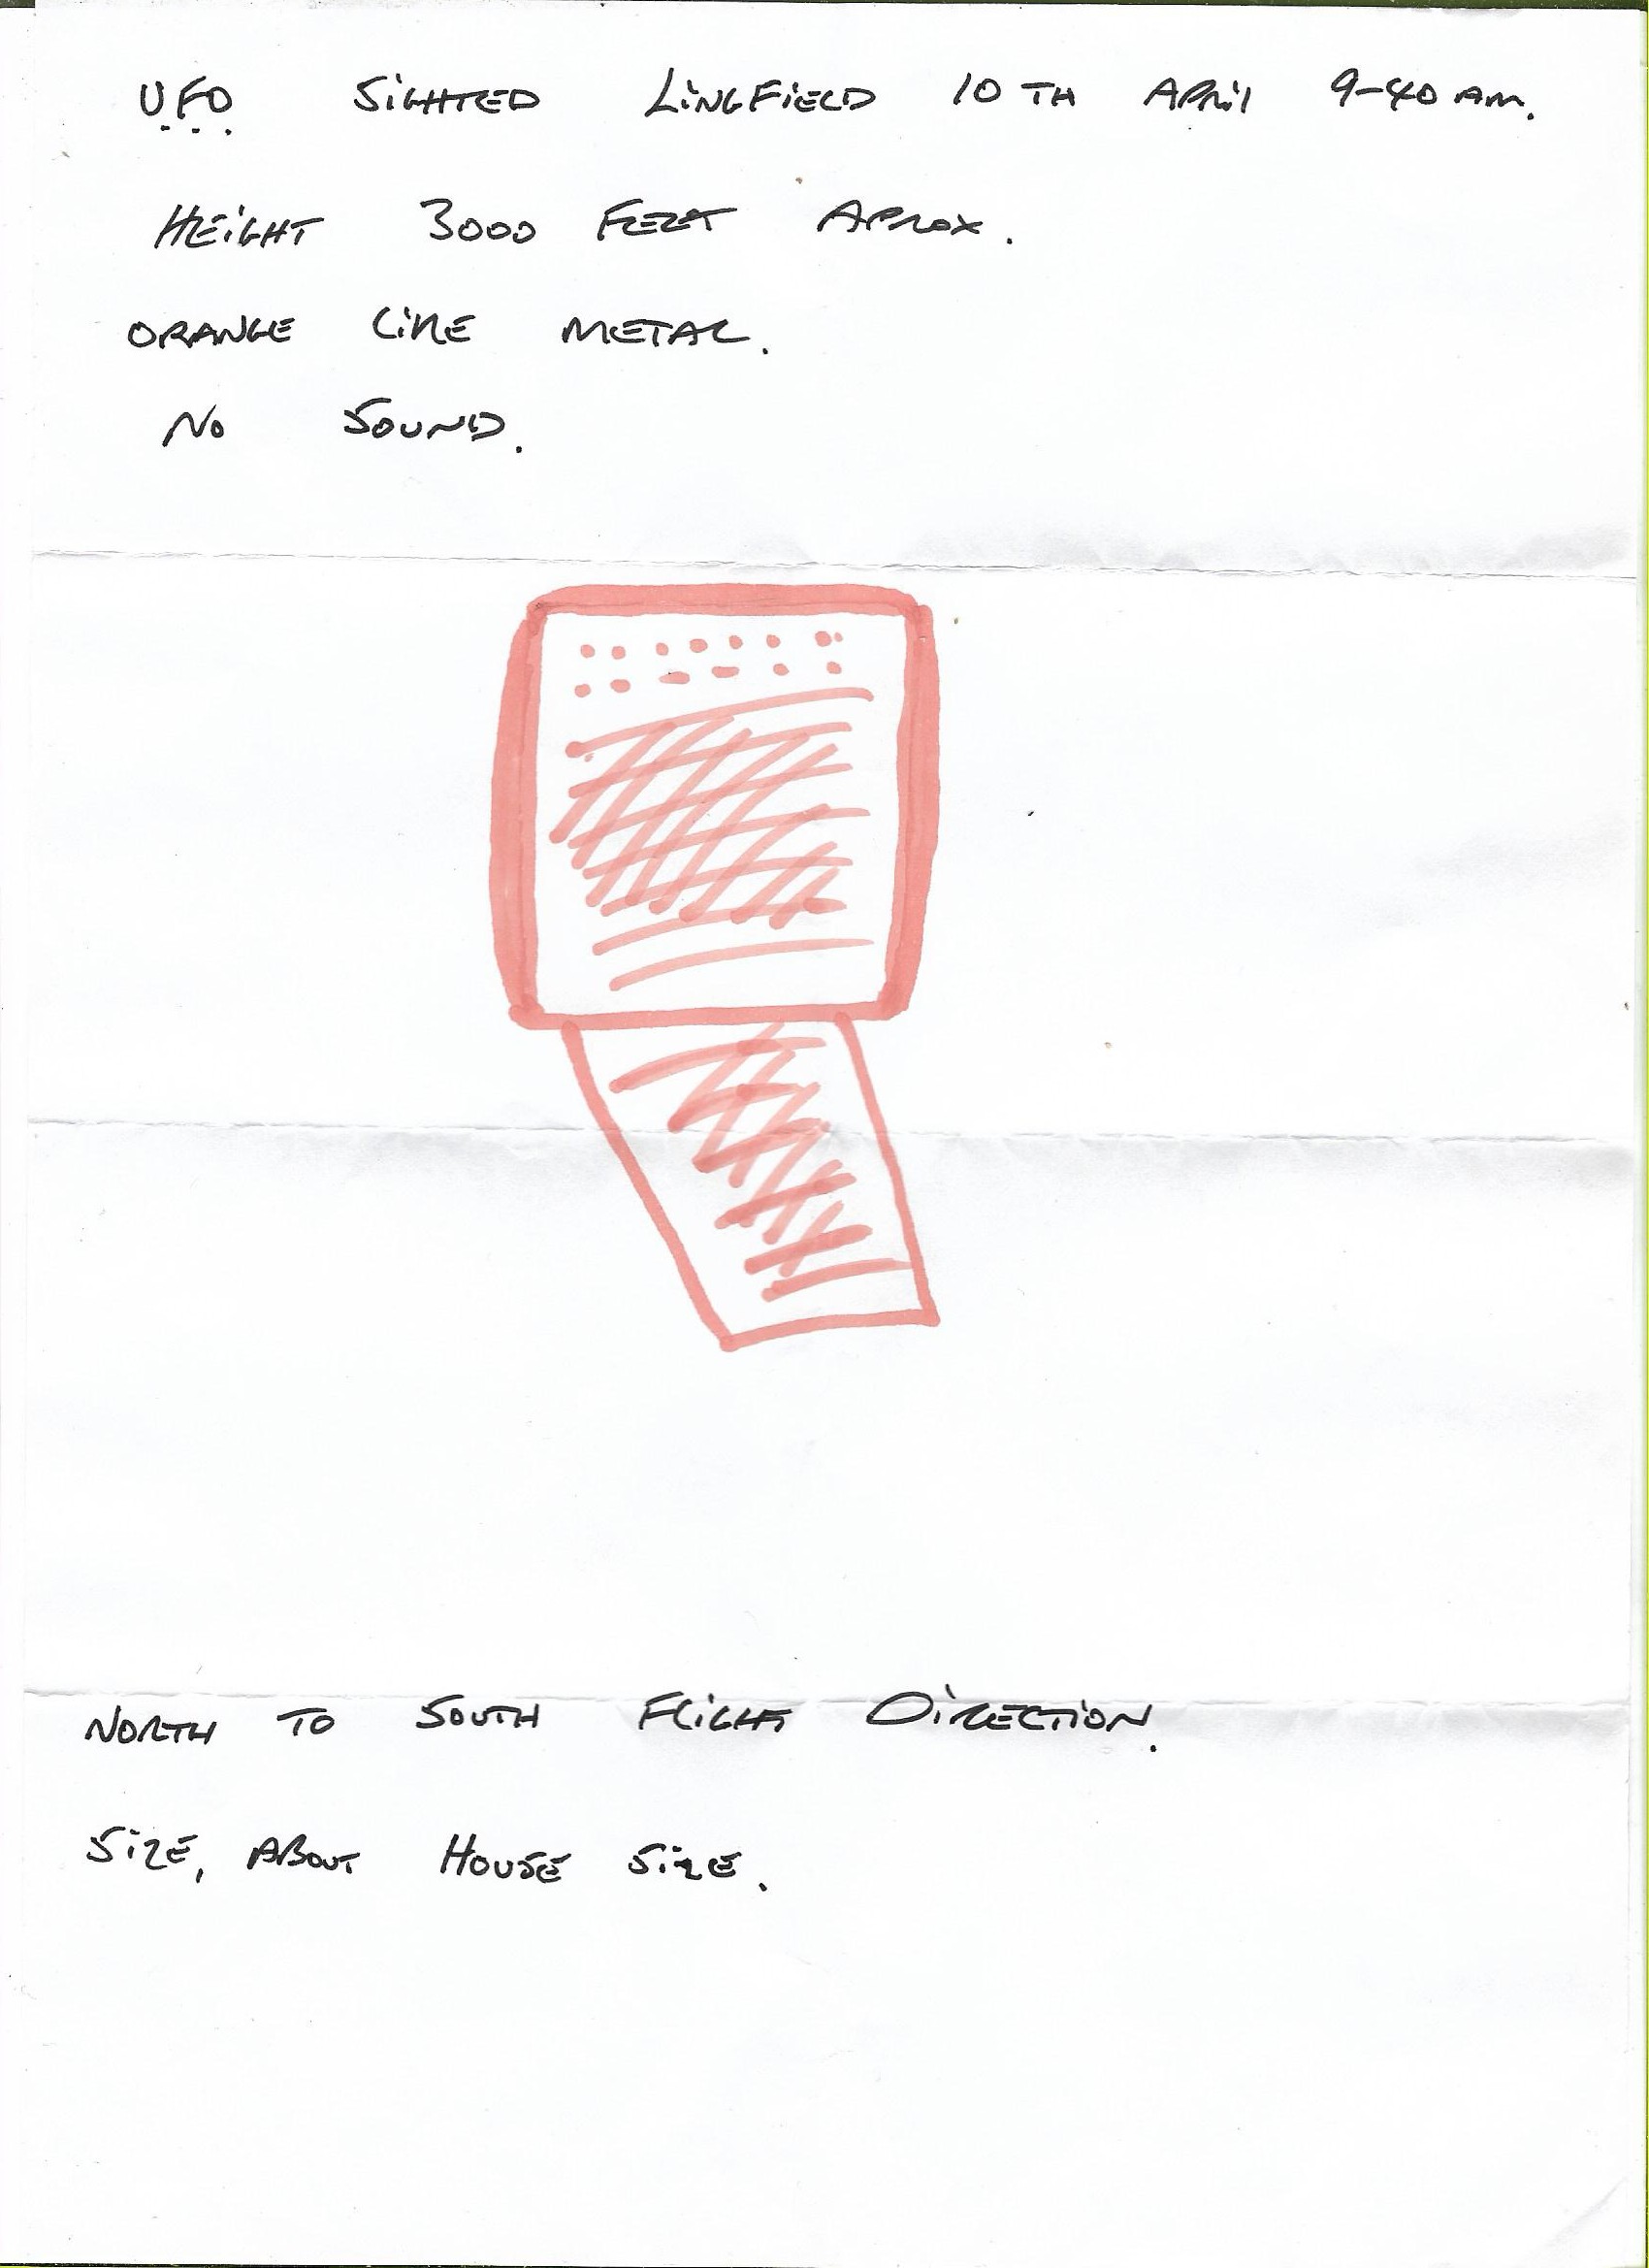 UFO SiGHTED LiNGFiELD 10 TH APRil 9-40 AM.
HEiGHT 3000 FEET APROX.
ORANGE LiKE METAL.
NO SOUND.
NORTH TO SOUTH FLiGHT DiRECTiON.
SiZE, ABOUT HOUSE SiZE.